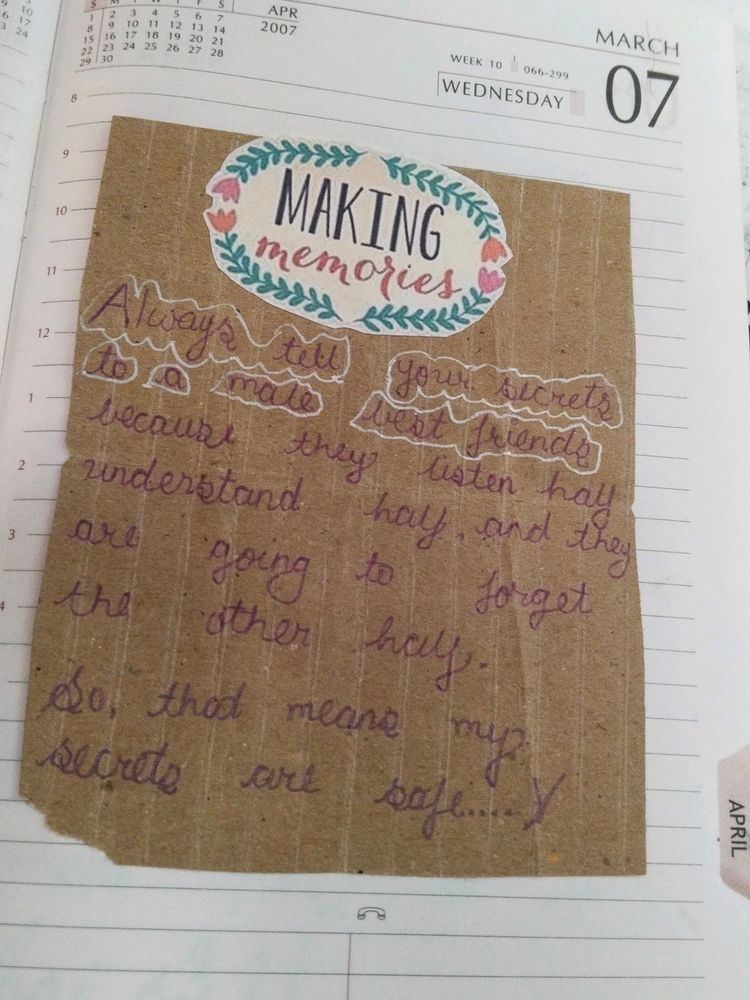 S M T W T F S
1 2 3 4 5 6 7
8 9 10 11 12 13 14
15 16 17 18 19 20 21
22 23 24 25 26 27 28
29 30
APR
2007
MARCH
WEEK 10 066-299
WEDNESDAY
07
8
9
10
11
12
1
2
3
4
MAKING
memories
Always tell your secrets
to a male best friends
because they listen half
understand half, and they
are going to forget
the other half.
So, that means my
secrets are safe.....
APRIL